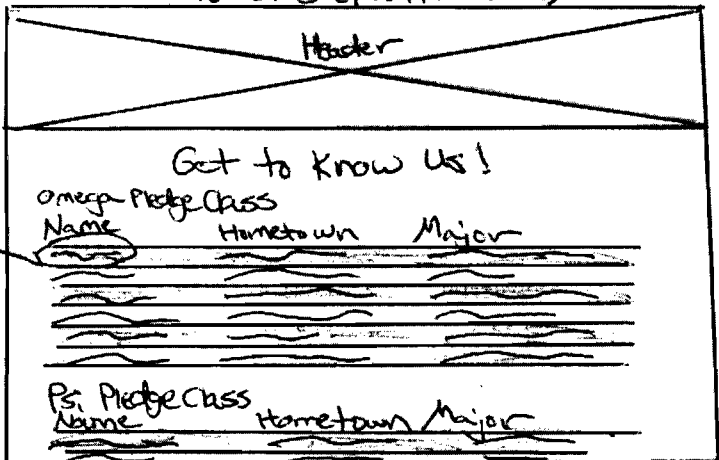 Header
Get to Know Us!
Omega Pledge Class
Name Hometown Major
Psi Pledge Class
Name Hometown Major